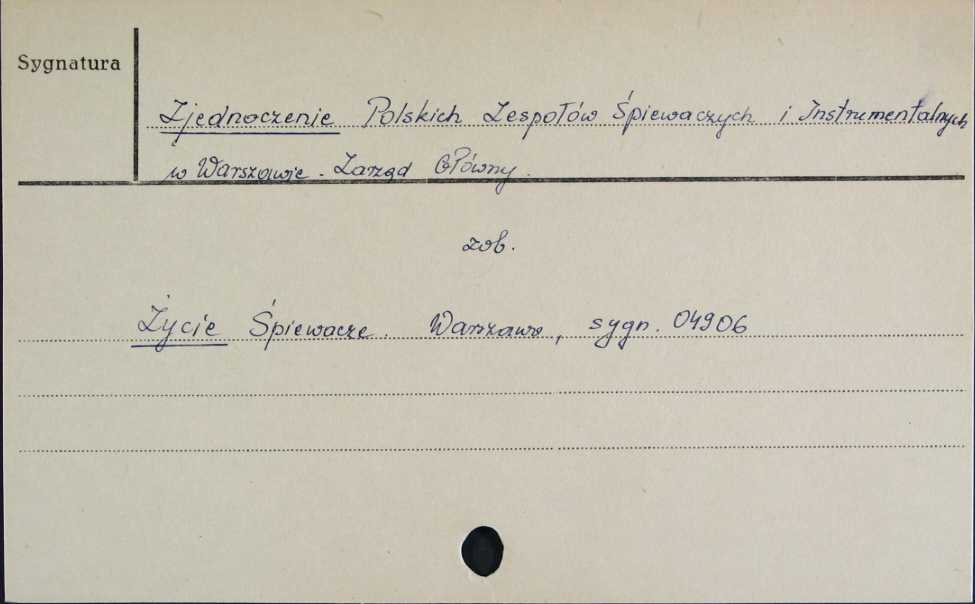 Sygnatura
Zjednoczenie Polskich Zespołów Śpiewaczych i Instrumentalnych
w Warszawie. Zarząd Główny.
zob.
Życie Śpiewacze. Warszawa, sygn. 04906